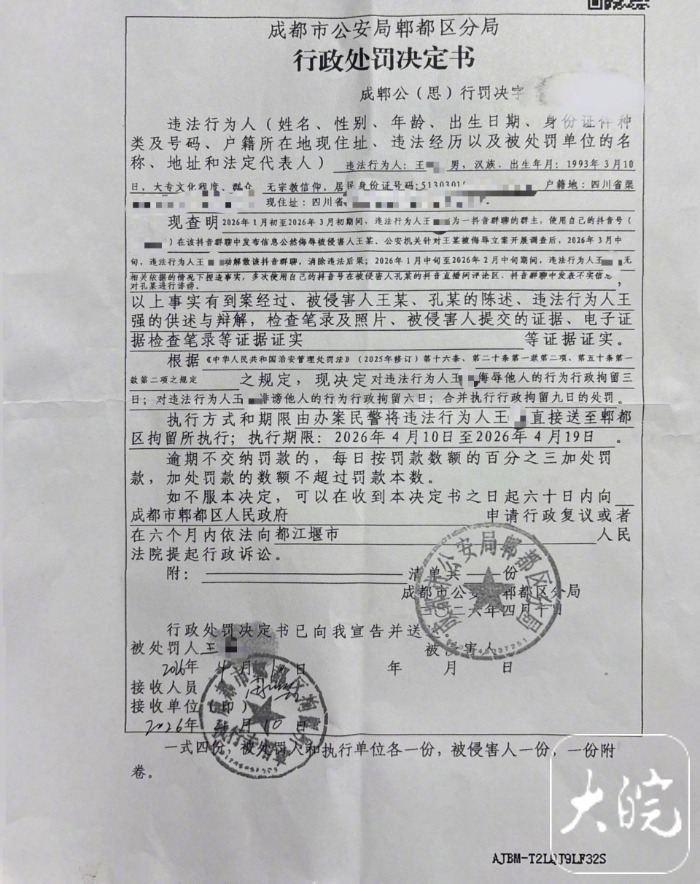 成都市公安局郫都区分局
行政处罚决定书
成郫公（思）行罚决字
违法行为人（姓名、性别、年龄、出生日期、身份证件种
类及号码、户籍所在地现住址、违法经历以及被处罚单位的名
称、地址和法定代表人） 违法行为人：王 男，汉族，出生年月：1993年3月10
日，大专文化程度，群众，无宗教信仰，居民身份证号码：5130301 户籍地：四川省渠
现住址：四川省
现查明2026年1月初至2026年3月初期间，违法行为人王 为一抖音群聊的群主，使用自己的抖音号（
）在该抖音群聊中发布信息公然侮辱被侵害人王某。公安机关针对王某被侮辱立案开展调查后，2026年3月中
旬，违法行为人王 动解散该抖音群聊，消除违法后果；2026年1月中旬至2026年2月中旬期间，违法行为人王 无
相关依据的情况下捏造事实，多次使用自己的抖音号在被侵害人孔某的抖音直播间评论区、抖音群聊中发表不实信息
对孔某进行诽谤。
以上事实有到案经过、被侵害人王某、孔某的陈述、违法行为人王
强的供述与辩解，检查笔录及照片、被侵害人提交的证据、电子证
据检查笔录等证据证实 等证据证实。
根据《中华人民共和国治安管理处罚法》（2025年修订）第十六条、第二十条第一款第二项、第五十条第一
款第二项之规定 之规定，现决定对违法行为人王 侮辱他人的行为行政拘留三
日；对违法行为人王 诽谤他人的行为行政拘留六日；合并执行行政拘留九日的处罚。
执行方式和期限由办案民警将违法行为人王 直接送至郫都
区拘留所执行；执行期限：2026年4月10日至2026年4月19日。
逾期不交纳罚款的，每日按罚款数额的百分之三加处罚
款，加处罚款的数额不超过罚款本数。
如不服本决定，可以在收到本决定书之日起六十日内向
成都市郫都区人民政府 申请行政复议或者
在六个月内依法向都江堰市 人民
法院提起行政诉讼。
附： 清单共 份
成都市公安局郫都区分局
二六年四月十日
行政处罚决定书已向我宣告并送
被处罚人王 被侵害人
2026年4月 日 年 月 日
接收人员
接收单位（印）
2026年 月10日
一式四份，被处罚人和执行单位各一份，被侵害人一份，一份附
卷。
大皖
AJBM-T2LQJ9LF32S